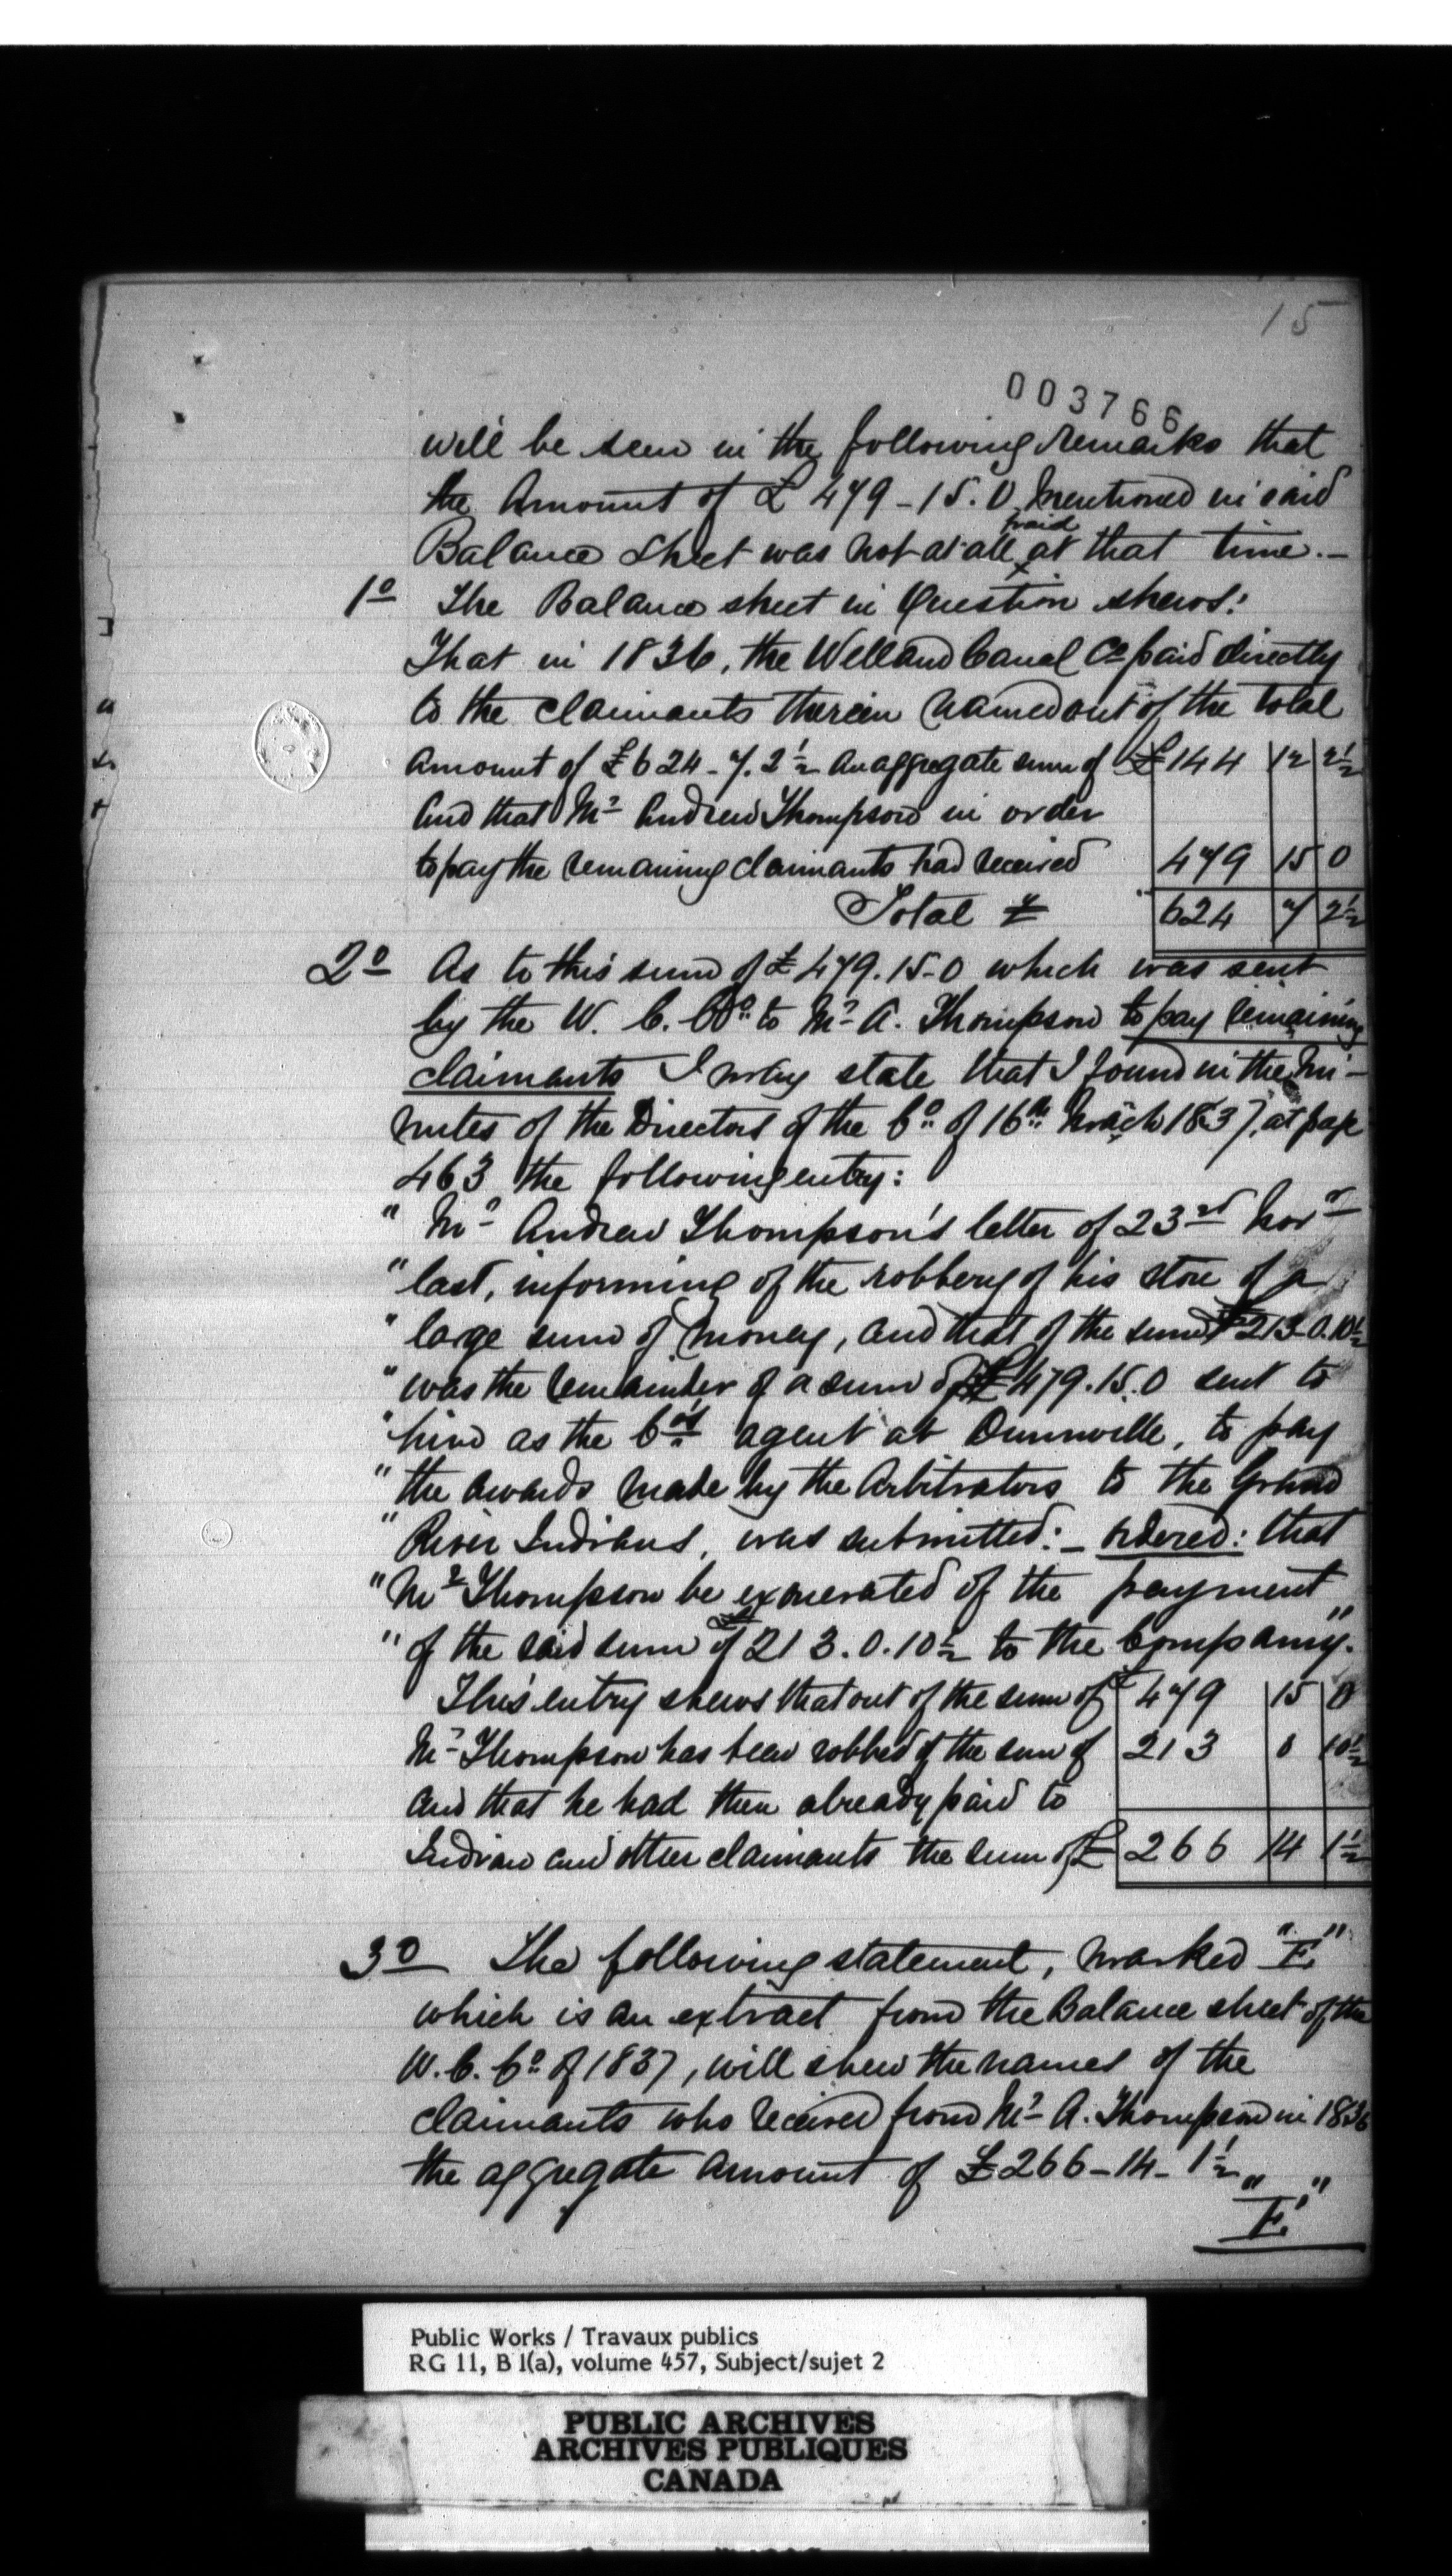 15
003766
will be seen in the following remarks that
the Amount of £ 479-15.0 mentioned in said
paid
Balance Sheet was not at all at that time.-
1o The Balance sheet in Question shews:
That in 1836, the Welland Canal Co paid directly
to the claimants therein named out of the total
amount of £624-7.2½ an aggregate sum of £144 12 2½
And that Mr Andrew Thompson in order
to pay the remaining claimants had received 479 15 0
Total £ 624 7 2½
2o As to this sum of £479.15-0 which was sent
by the W. C. Co. to Mr A. Thompson to pay remaining
claimants I may state that I found in the Mi-
nutes of the Directors of the Co. of 16th March 1837, at page
463 the following entry:
" Mr Andrew Thompson's letter of 23rd Novr
" last, informing of the robbery of his store of a
" large sum of money, and that of the sum £213-0.10½
" was the remainder of a sum of £479.15.0 sent to
" him as the Co's agent at Dunnville, to pay
" the awards made by the Arbitrators to the Grand
" River Indians, was submitted:- ordered: that
" Mr Thompson be exonerated of the payment
" of the said sum of £213.0.10½ to the Company."
This entry shews that out of the sum of £ 479 15 0
Mr Thompson has been robbed of the sum of 213 0 10½
and that he had then already paid to
Indian and other claimants the sum of £ 266 14 1½
3o The following statement, marked "E"
which is an extract from the Balance sheet of the
W. C. Co. of 1837, will shew the names of the
claimants who received from Mr A. Thompson in 1836
the aggregate amount of £266-14-1½
"E"
Public Works / Travaux publics
RG 11, B 1(a), volume 457, Subject/sujet 2
PUBLIC ARCHIVES
ARCHIVES PUBLIQUES
CANADA